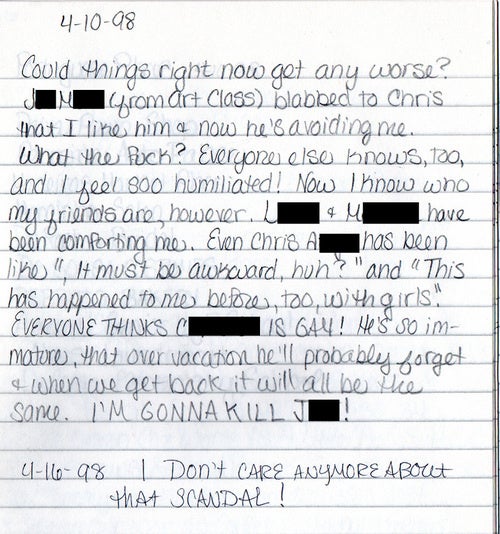 4-10-98
Could things right now get any worse?
J M (from art class) blabbed to Chris
that I like him & now he's avoiding me.
What the Fuck? Everyone else knows, too,
and I feel soo humiliated! Now I know who
my friends are, however. L & M have
been comforting me. Even Chris A has been
like ", It must be awkward, huh?" and "This
has happened to me before, too, with girls".
EVERYONE THINKS C IS GAY! He's so im-
mature, that over vacation he'll probably forget
& when we get back it will all be the
same. I'M GONNA KILL J !
4-16-98 I DON'T CARE ANYMORE ABOUT
tHAt SCANDAL!